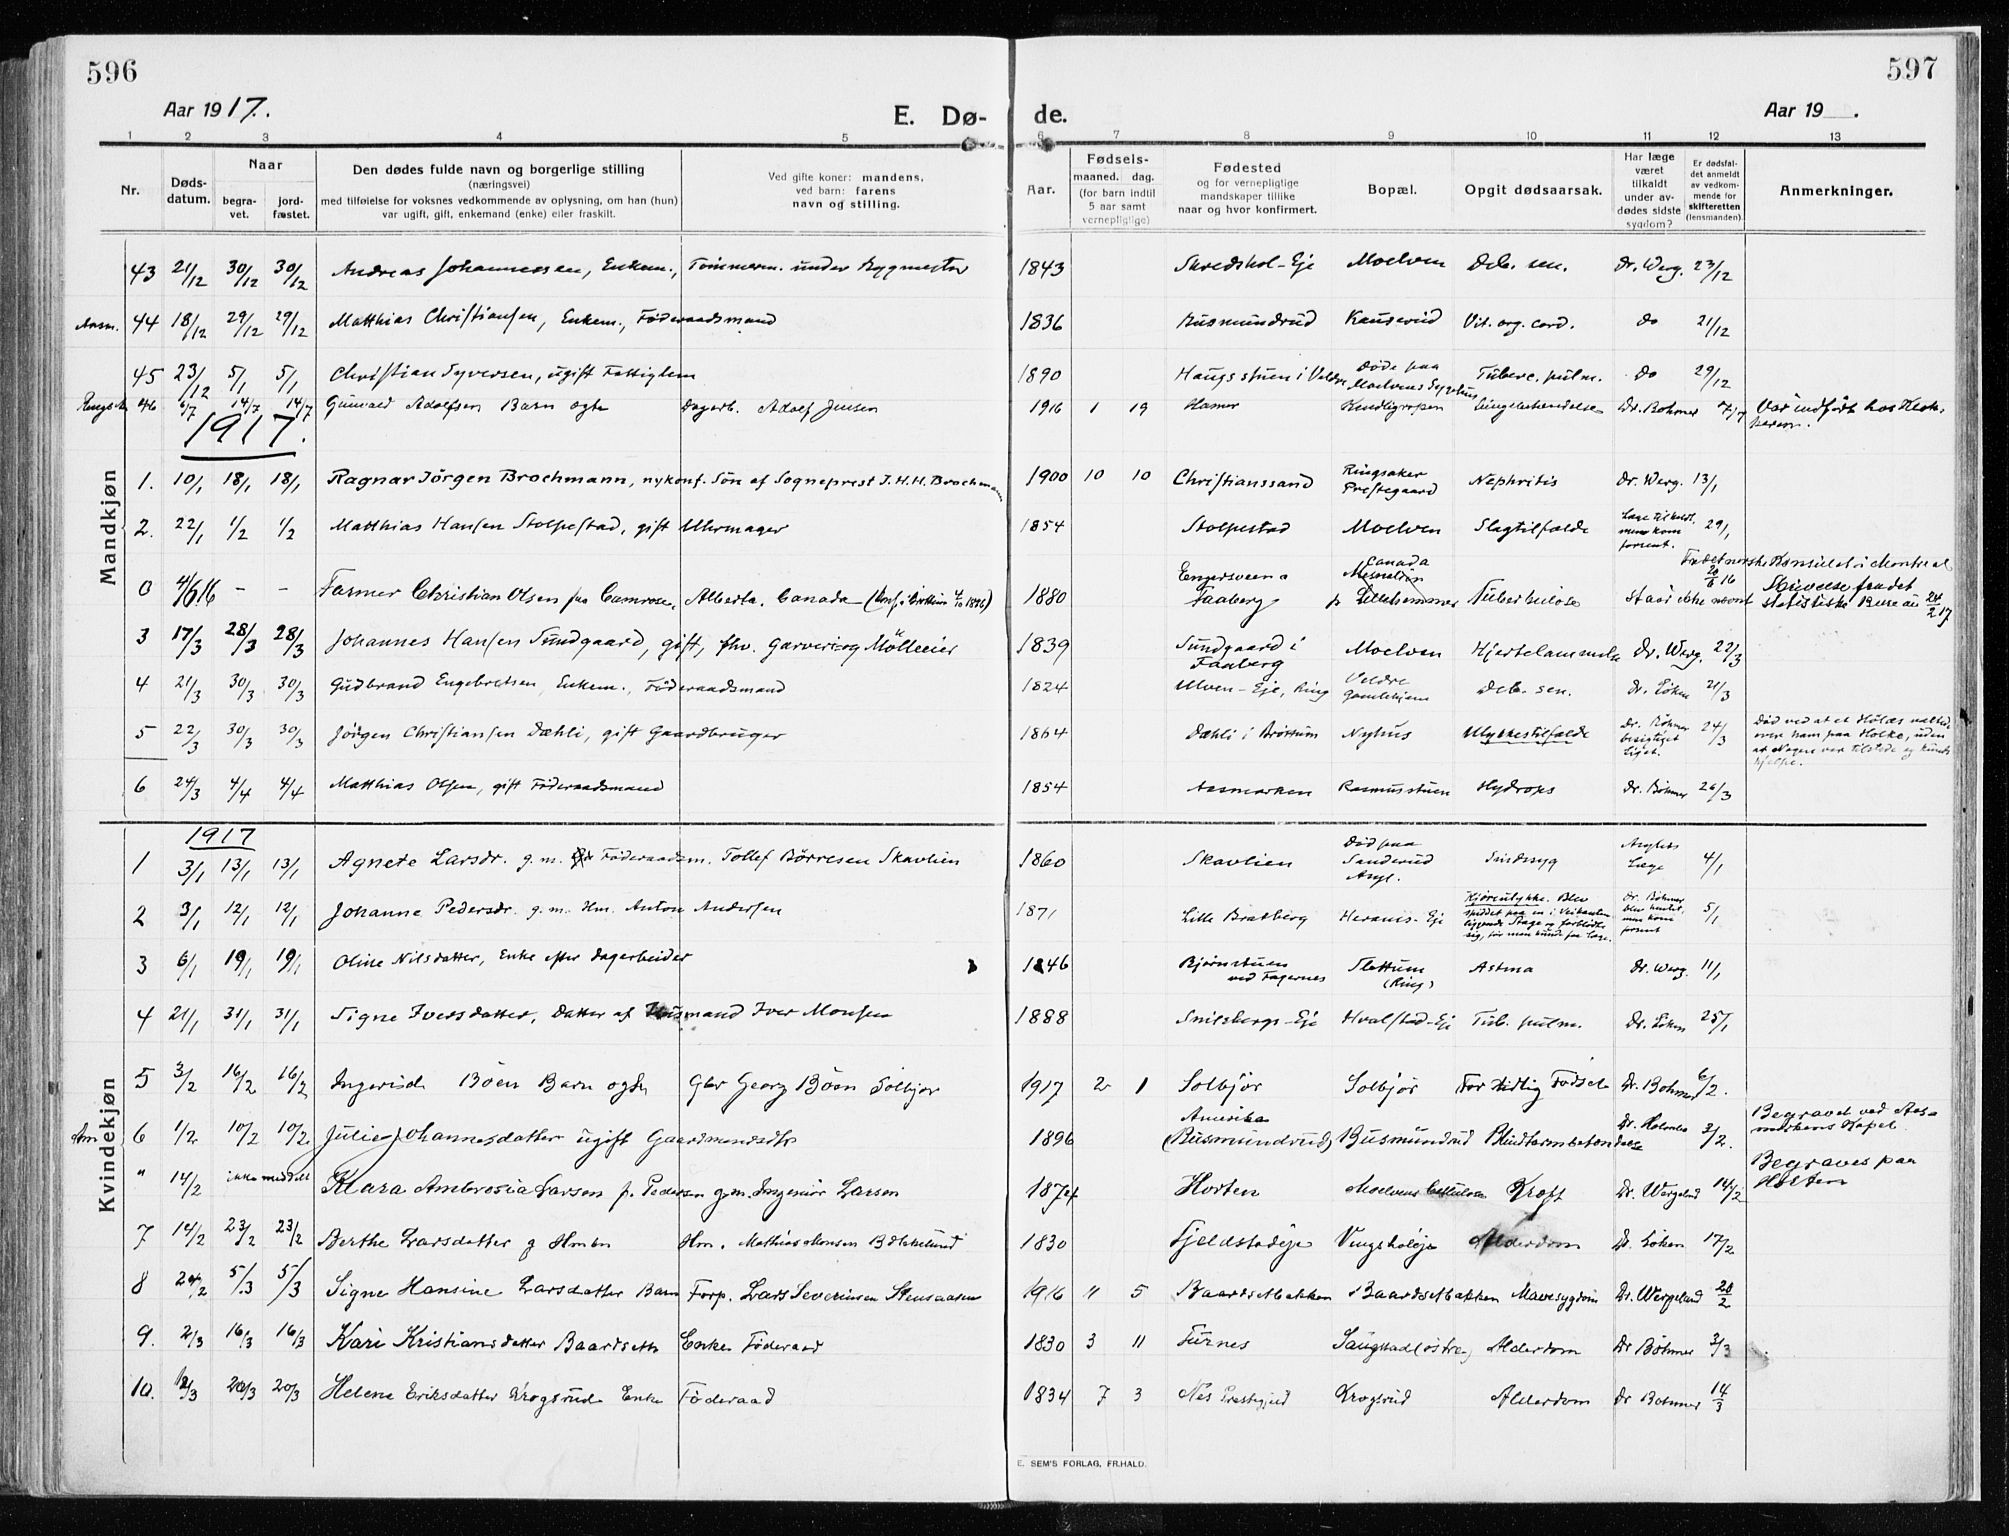 596
597
Aar 1917.
E. Dø-
de.
Aar 19 .
1 2 3 4 5 6 7 8 9 10 11 12 13
Nr.
Døds-
datum.
Naar
begra-
vet.
jord-
fæstet.
Den dødes fulde navn og borgerlige stilling
(næringsvei)
med tilføielse for voksnes vedkommende av oplysning, om han (hun)
var ugift, gift, enkemand (enke) eller fraskilt.
Ved gifte koner: mandens,
ved barn: farens
navn og stilling.
Aar.
Fødsels-
maaned. dag.
(for barn indtil
5 aar samt
vernepligtige)
Fødested
og for vernepligtige
mandskaper tillike
naar og hvor konfirmert.
Bopæl.
Opgit dødsaarsak.
Har læge
været
tilkaldt
under av-
dødes sidste
sygdom?
Er dødsfal-
det anmeldt
av vedkom-
mende for
skifteretten
(lensmanden).
Anmerkninger.
Mandkjøn
43 21/12 30/12 30/12 Andreas Johannessen, Enkem., Tømmerm. under Bygmester 1843 Skredshol-Eje Moelven Deb. sen. Dr. Werg. 23/12
Aasm. 44 18/12 29/12 29/12 Matthias Christiansen, Enkem., Føderaadsmand 1836 Busmundrud Kauserud Vit. org. cord. do 21/12
45 23/12 5/1 5/1 Christian Syversen, ugift Fattiglem 1890 Haugsstuen i Veldre Døde paa Moelvens Sygehus Tuberc. pulm. do 29/12
46 6/7 14/7 14/7 Gunvald Adolfsen Barn ogte Dagarb. Adolf Jensen 1916 1 19 Hamar Lungebetændelse Dr. Bohmer Var indført hos
1917.
1. 10/1 18/1 18/1 Ragnar Jörgen Brochmann, nykonf. Søn af Sogneprest J. H. H. Brochmann 1900 10 10 Christianssand Ringsaker Prestegaard Nephritis Dr. Werg. 13/1
2. 22/1 1/2 1/2 Matthias Hansen Stolpestad, gift Uhrmager 1854 Stolpestad Moelven Slagtilfælde Læge tilkaldt, men kom forsent. 29/1
0 4/6 16 - - Farmer Christian Olsen fra Camrose, Alberta. Canada (konf. i Brøttum 4/10 1896) 1880 Engersveen Faaberg Canada Lillehammer Tuberkulose staar ikke nævnt Fra det norske Konsulat i Montreal 20/6 16 Skrivelse fra det statistiske Bureau 24/2 17
3 17/3 28/3 28/3 Johannes Hansen Sundgaard, gift, fhv. Garveri og Mølleeier 1839 Sundgaard i Faaberg Moelven Hjertelammelse Dr. Werg. 22/3
4 21/3 30/3 30/3 Gudbrand Engebretsen, Enkem., Føderaadsmand 1824 Ulven-Eje, Ring Veldre Gamlehjem Deb. sen. Dr. Løken 21/3
5 22/3 30/3 30/3 Jörgen Christiansen Dæhli, gift Gaardbruger 1864 Dæhli i Brøttum Nyhus Ulykkestilfælde Dr. Böhmer besigtiget Liget. 24/3 Død ved at et Hølæs veltede over ham paa Holke, uden at Nogen var tilstede og kunde hjelpe.
6 24/3 4/4 4/4 Matthias Olsen, gift Føderaadsmand 1854 Aasmarken Rasmusstuen Hydrops Dr. Böhmer 26/3
Kvindekjøn
1917
1 3/1 13/1 13/1 Agnete Larsdr. g. m. Føderaadsm. Tollef Börresen Skavlien 1860 Skavlien Død paa Sanderud Asyl. Sindssyg Asylets Læge 4/1
2 3/1 12/1 12/1 Johanne Pedersdr. g. m. Hm. Anton Andersen 1871 Lille Bratberg Heranes-Eje Kjøreulykke. Blev spiddet paa en i Veikanten liggende Stage og forblødte sig, før man kunde faa Læge. Dr. Böhmer blev hentet, men kom forsent 5/1
3 6/1 19/1 19/1 Oline Nilsdatter, Enke efter Dagarbeider 1846 Bjørnstuen ved Fagernes Slettum (Ring) Astma Dr. Werg. 11/1
4 21/1 31/1 31/1 Signe Iversdatter, Datter af Husmand Iver Monsen 1888 Snilsberg-Eje Hvalstad-Ej Tub. pulm. Dr. Løken 25/1
5 3/2 16/2 16/2 Ingerid Böen Barn ogte Gbr Georg Böen Solbjør 1917 2 1 Solbjør Solbjør For tidlig Fødsel Dr. Bohmer 6/2.
6 1/2 10/2 10/2 Julie Johannesdatter ugift Gaardmandsdtr 1896 Amerika (Busmundrud) Busmundrud Blindtarmbetændelse Dr. Holmbo 3/2. Begravet ved Aasmarkens Kapel.
" 14/2 ikke meddelt Klara Ambrosia Larsen f. Pedersen g. m. Ingeniør Larsen 1874 Horten Moelvens Cellulose Kræft Dr. Wergeland 14/2 Begraves paa Horten
7 14/2 23/2 23/2 Berthe Larsdatter g Hm. Mathias Monsen 1830 Fjeldstadeje Alderdom Dr. Løken 17/2
8 24/2 5/3 5/3 Signe Hansine Larsdatter Barn Forp. Lars Severinsen Stensaasen 1916 11 5 Baardsetbakken Baardsetbakken Mavesygdom Dr. Wergeland 28/2
9. 2/3 16/3 16/3 Kari Kristiansdatter Baardseth Enke Føderaad 1830 3 11 Furnes Saugstad (østre) Alderdom Dr Böhmer 3/3
10. 12/3 20/3 20/3 Helene Eriksdatter Krogsrud Enke Föderaad 1834 7 3 Nes Prestegjeld Krogsrud Alderdom Dr Bohmer 14/3
E. SEM'S FORLAG, FR.HALD.